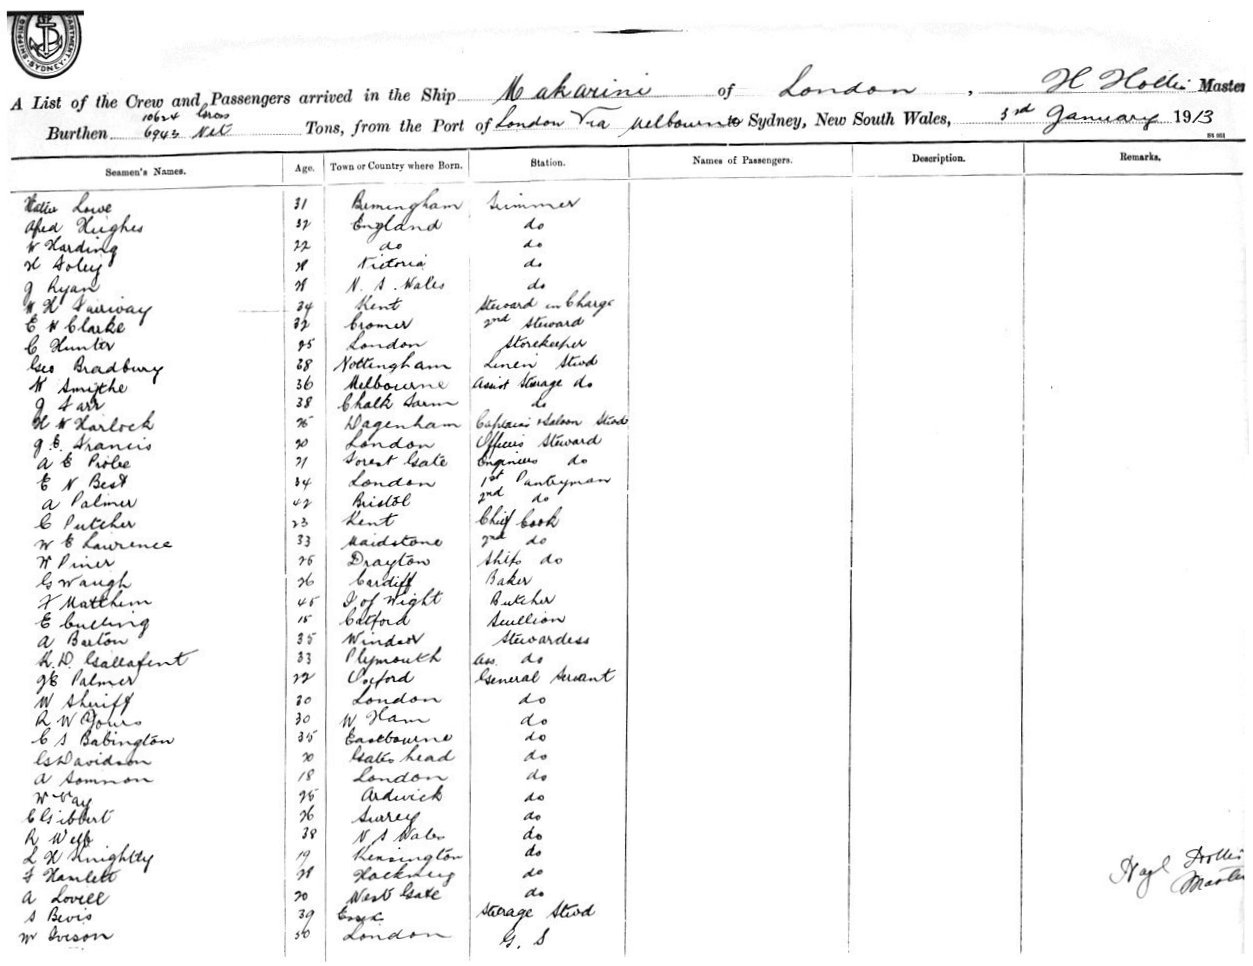 SHIPPING DEPARTMENT SYDNEY
A List of the Crew and Passengers arrived in the Ship Makarini of London, H Hollis Master
10624 Gross
Burthen 6943 Net Tons, from the Port of London Via Melbourne to Sydney, New South Wales, 3rd January 1913
Seamen's Names. Age. Town or Country where Born. Station. Names of Passengers. Description. Remarks.
Lowe 31 Birmingham Trimmer
Hughes 32 England do
W Harding 22 do do
H Foley Victoria do
J Ryan N. S. Wales do
W. H Fairway 34 Kent Steward in Charge
E W Clarke 32 Cromer 2nd Steward
C Hunter 25 London Storekeeper
Geo Bradbury 38 Nottingham Linen Stwd
W Smythe 36 Melbourne Assist Steerage do
J Farr 38 Chalk Farm do
H W Harlock 25 Dagenham Captains & Saloon Stwd
J. E. Francis 20 London Officers Steward
A E Probe 21 Forest Gate Engineers do
E N Best 34 London 1st Pantryman
A Palmer 42 Bristol 2nd do
C Putcher 23 Kent Chief Cook
W E Lawrence 33 Maidstone 2nd do
W Piner 25 Drayton Ships do
G Waugh 26 Cardiff Baker
F Matthem 45 I of Wight Butcher
E Cutting 15 Catford Scullion
A Beeton 35 Windsor Stewardess
K. D. Gallafent 33 Plymouth Ass. do
J E Palmer 22 Oxford General Servant
W Sheriff 20 London do
R W Yours 30 W Ham do
C S Babington 35 Eastbourne do
G Davidson 20 Gateshead do
A Sommon 18 London do
W Vay 25 Ardwick do
C Gibbert 26 Surrey do
R Webb 38 N S Wales do
L H Knightly 19 Kensington do
F Hamlett Hackney do
A Lovell 20 West Gate do
S Bevis 39 Essex Steerage Stwd
W Iveson 30 London G. S
Hollis
Master